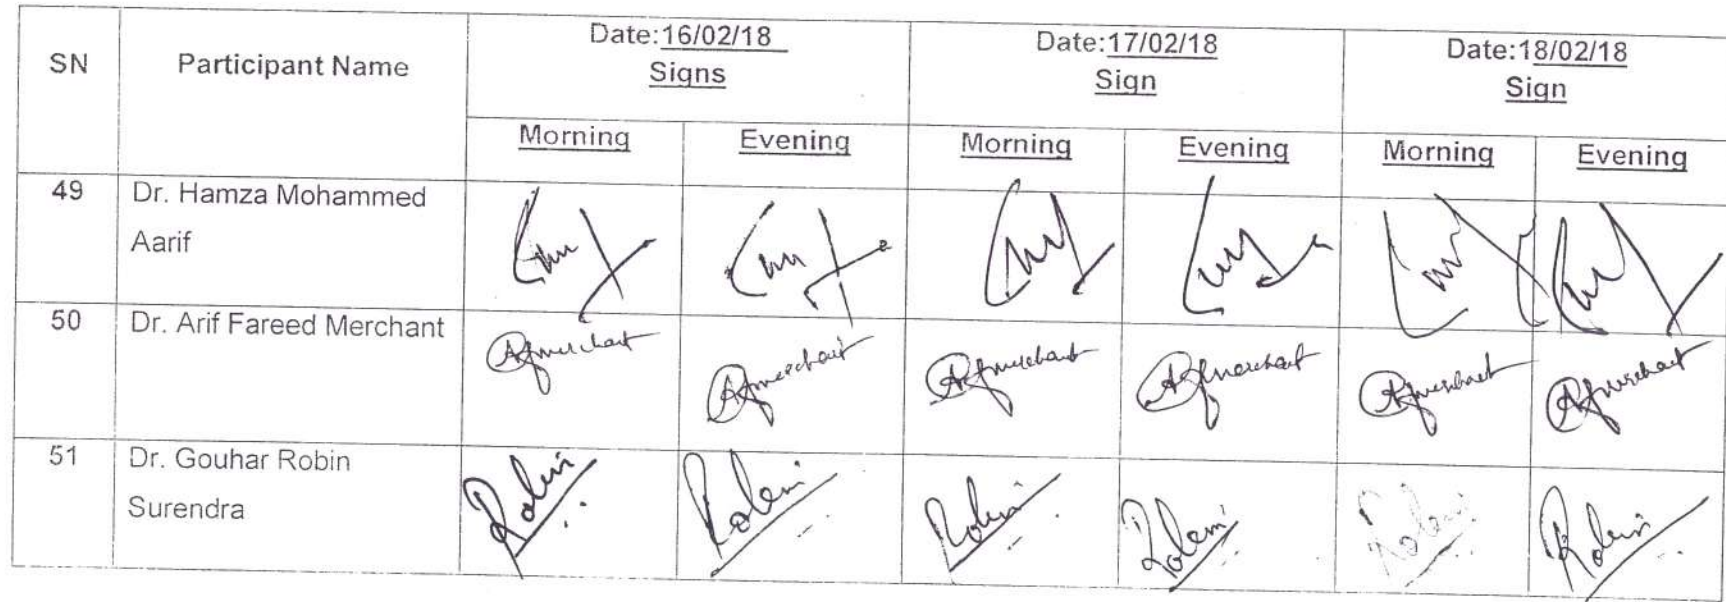 SN Participant Name Date:16/02/18 Date:17/02/18 Date:18/02/18
Signs Sign Sign
Morning Evening Morning Evening Morning Evening
49 Dr. Hamza Mohammed
Aarif
50 Dr. Arif Fareed Merchant
Afmerchant Afmerchant Afmerchant Afmerchant Afmerchant Afmerchant
51 Dr. Gouhar Robin
Surendra
Robin Robin Robin Robin Robin Robin